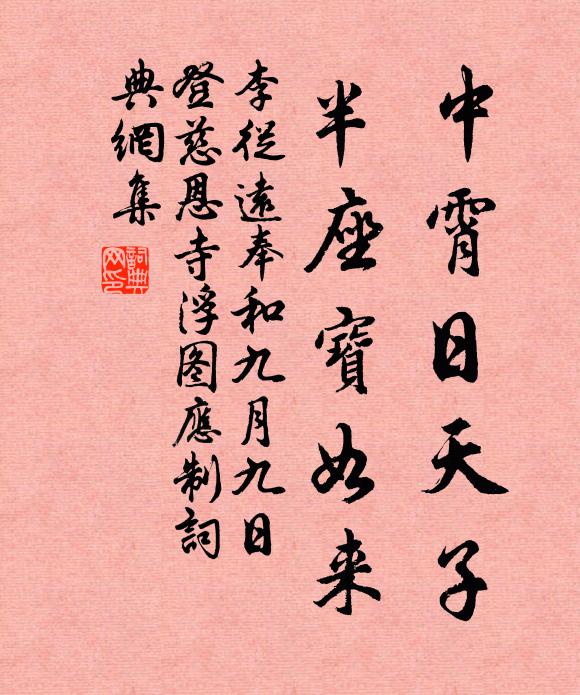 中霄日天子
半座寶如来
李從遠奉和九月九日
登慈恩寺浮图應制詞
典網集
詞典
网印